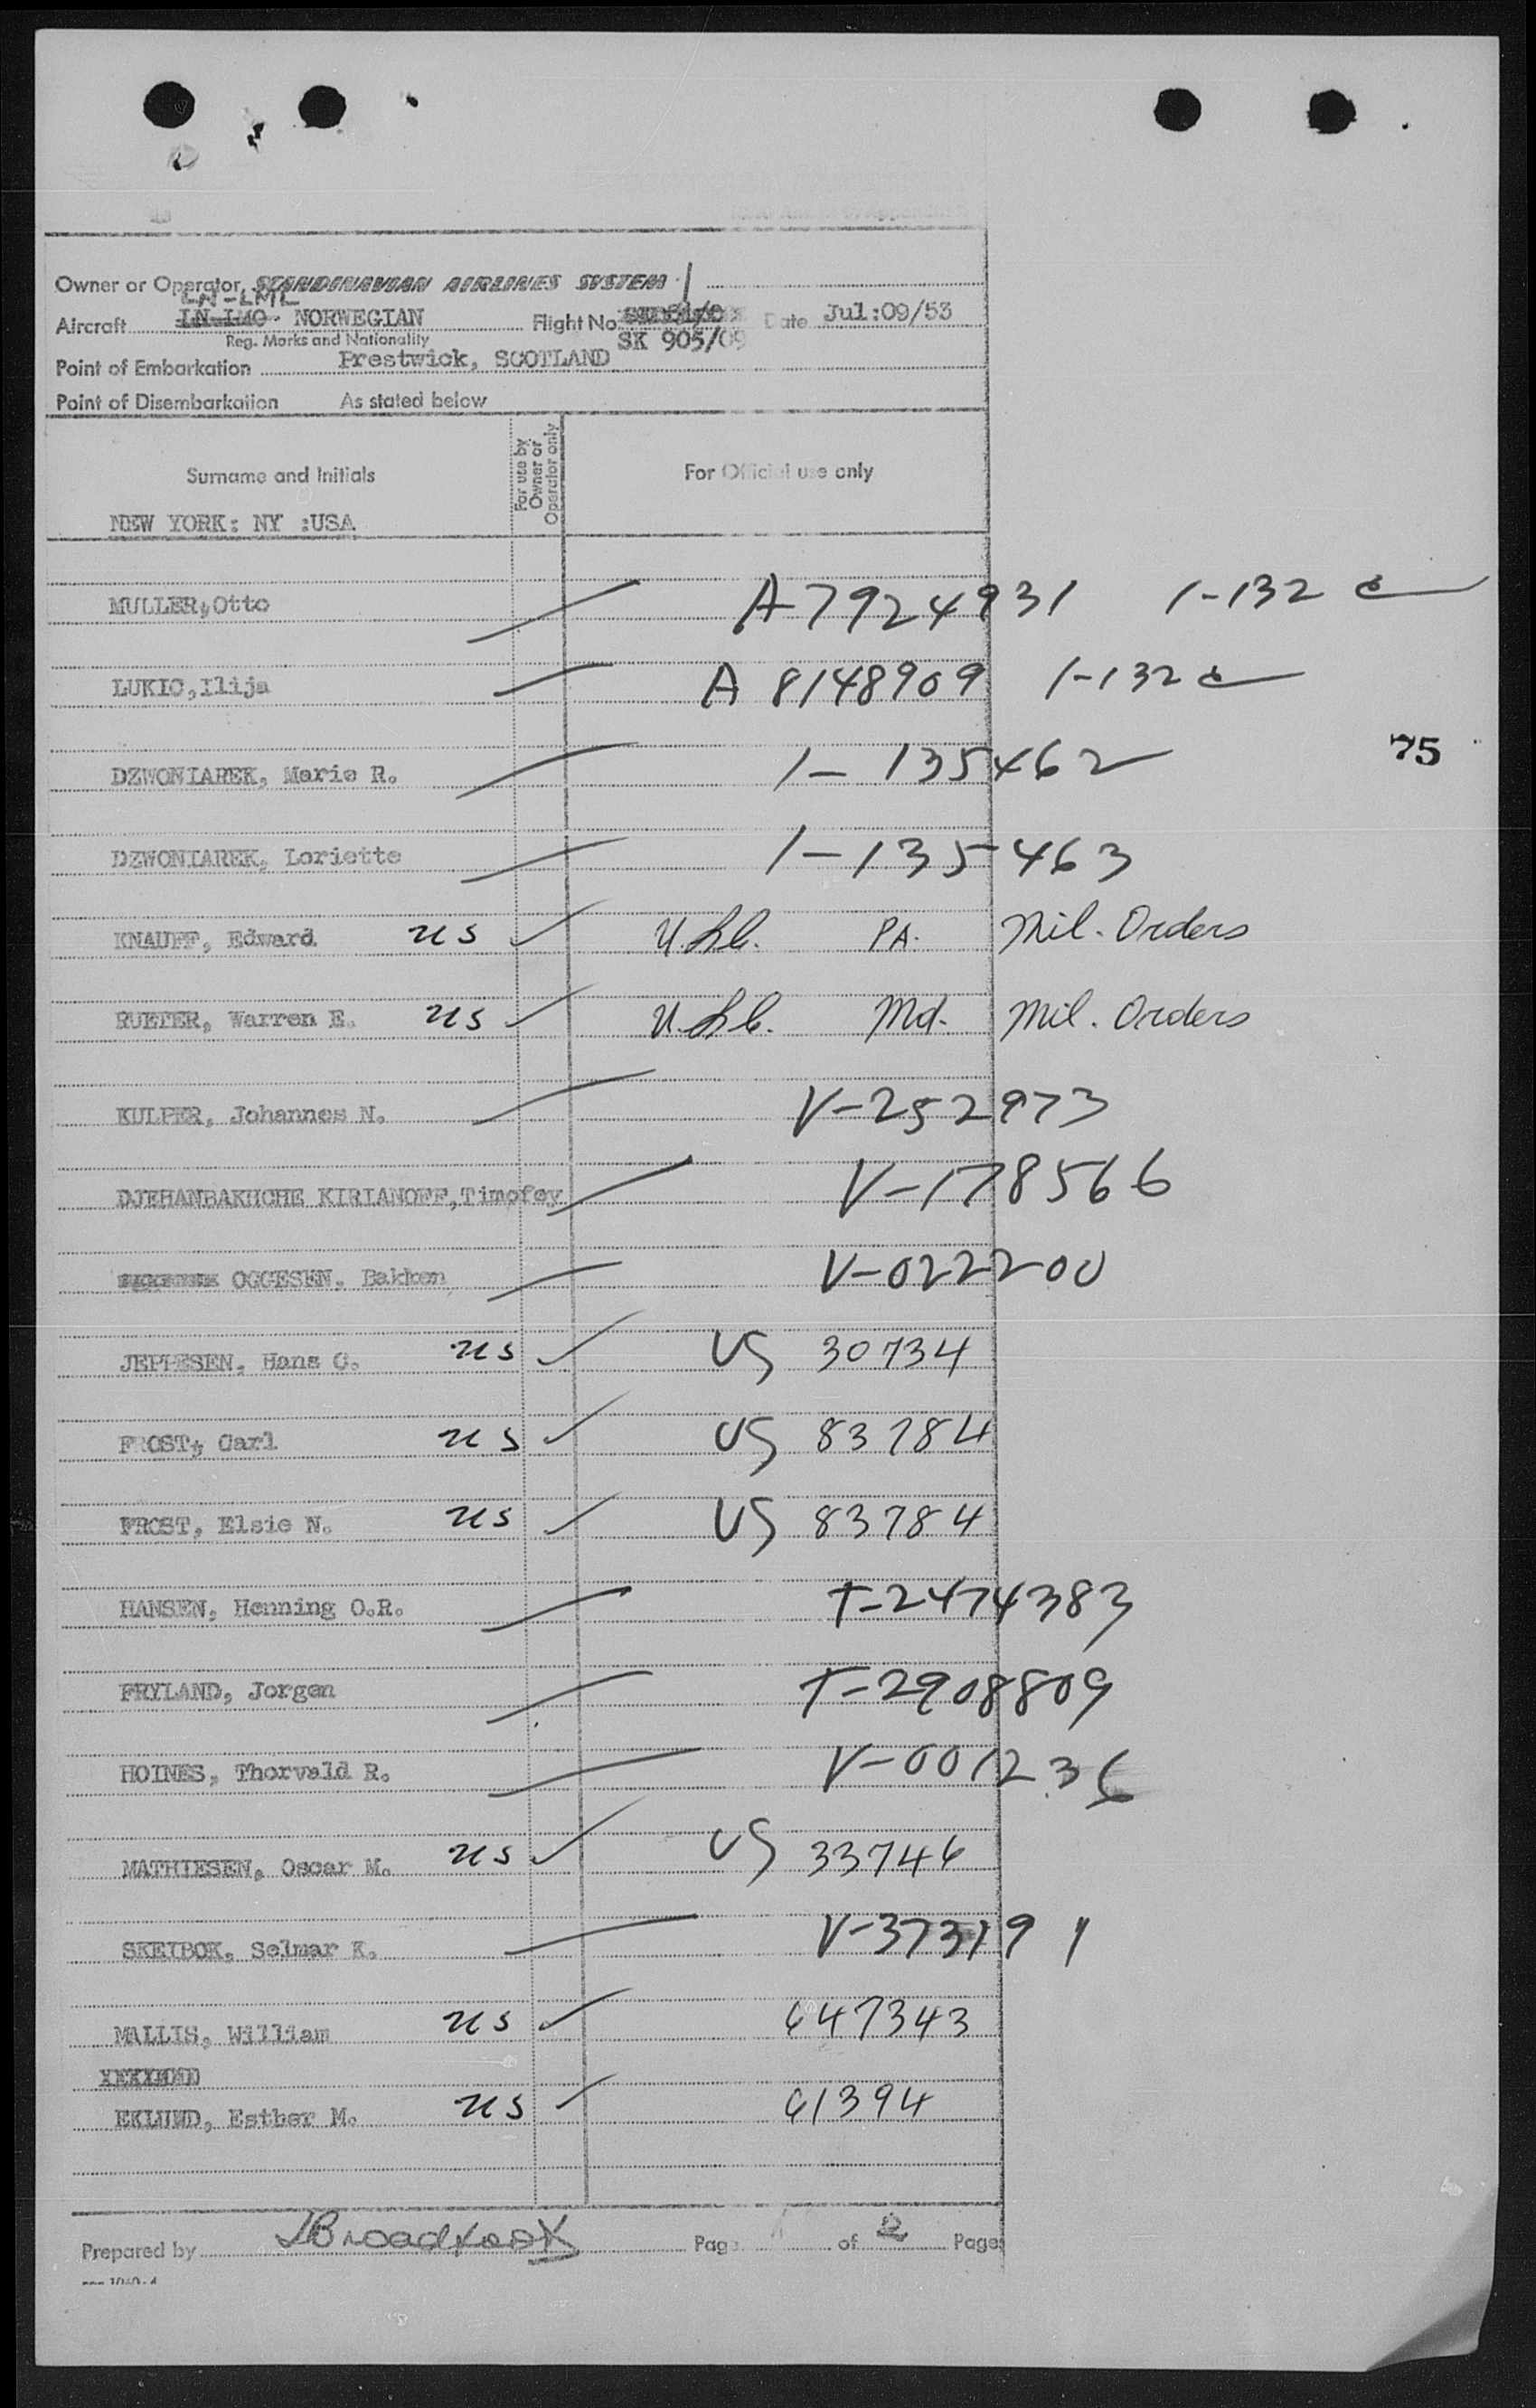 Owner or Operator SCANDINAVIAN AIRLINES SYSTEM
LN-LML
Aircraft LN-LMO NORWEGIAN Flight No. Date Jul:09/53
Reg. Marks and Nationality SK 905/09
Point of Embarkation Prestwick, SCOTLAND
Point of Disembarkation As stated below
Surname and Initials For use by Owner or Operator only For Official use only
NEW YORK: NY :USA
MULLER,Otto A 7924931 1-132
LUKIC,Ilija A 8148909 1-132
75
DZWONIAREK, Marie R. 1-135462
DZWONIAREK, Loriette 1-135463
KNAUFF, Edward US PA. Mil. Orders
RUETER, Warren E. US Md. Mil. Orders
KULPER, Johannes N. V-252973
DJEHANBAKHCHE KIRIANOFF,Timofey V-178566
OGGESEN, Bakken V-022200
JEPPESEN, Hans C. US US 30734
FROST, Carl US US 83784
FROST, Elsie N. US US 83784
HANSEN, Henning O.R. T-2474383
FRYLAND, Jorgen T-2908809
HOINES, Thorvald R. V-001236
MATHIESEN, Oscar M. US US 33746
SKEIBOK, Selmar K. V-373191
MALLIS, William US 647343
EKLUND, Esther M. US 61394
Prepared by JBroadfoot Page 1 of 2 Pages